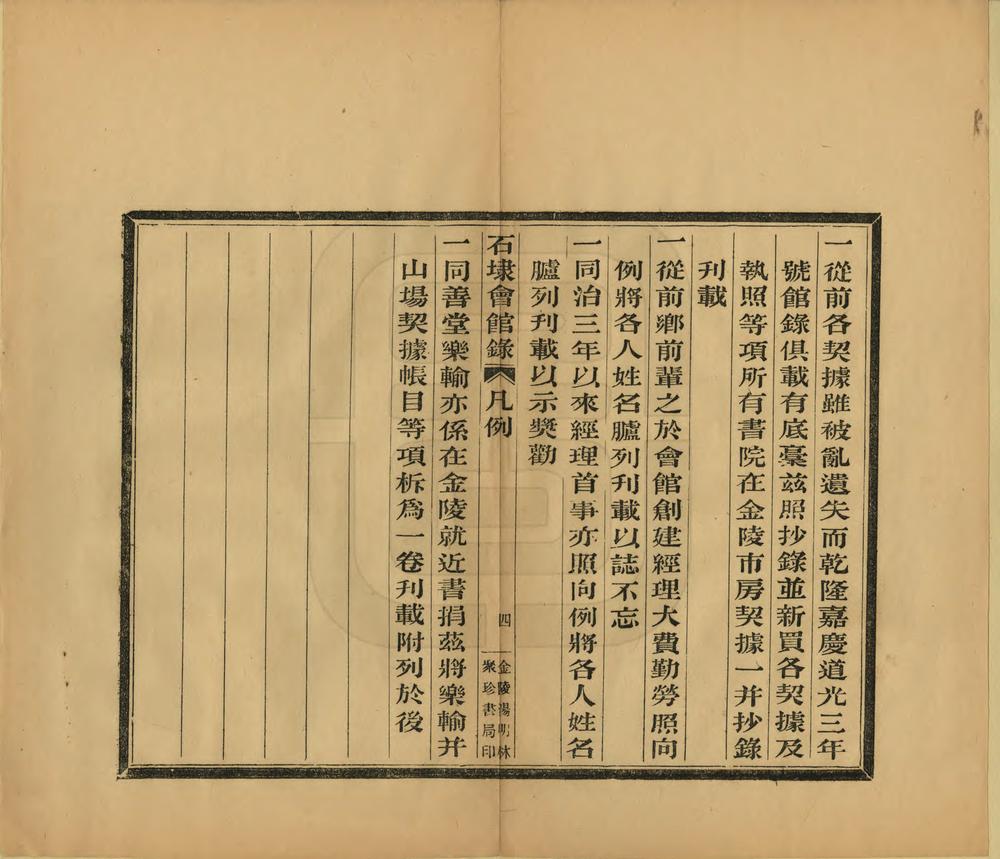 一從前各契據雖被亂遺失而乾隆嘉慶道光三年
號館錄俱載有底稾茲照抄錄並新買各契據及
執照等項所有書院在金陵市房契據一并抄錄
刋載
一從前鄉前輩之於會館創建經理大費勤勞照向
例將各人姓名臚列刋載以誌不忘
一同治三年以來經理首事亦照向例將各人姓名
臚列刋載以示奬勸
石埭會館錄 凡例 四 金陵湯明林聚珍書局印
一同善堂樂輸亦係在金陵就近書捐茲將樂輸并
山場契據帳目等項柝爲一卷刋載附列於後